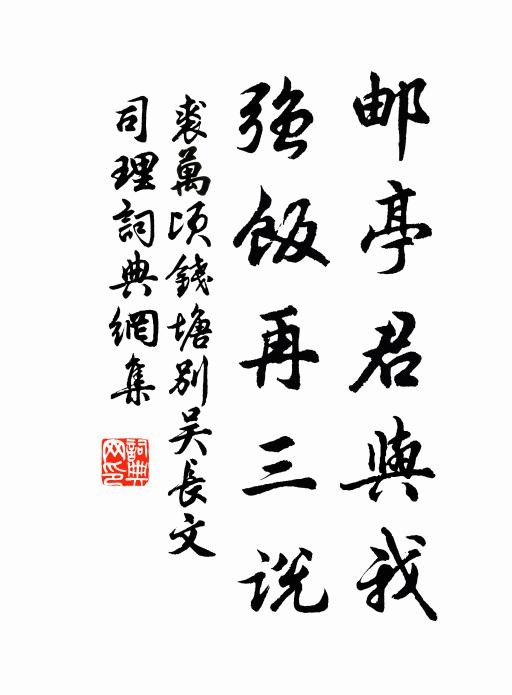 邮亭君與我
強飯再三說
裘萬頃錢塘別吴長文
司理詞典網集
詞典网印